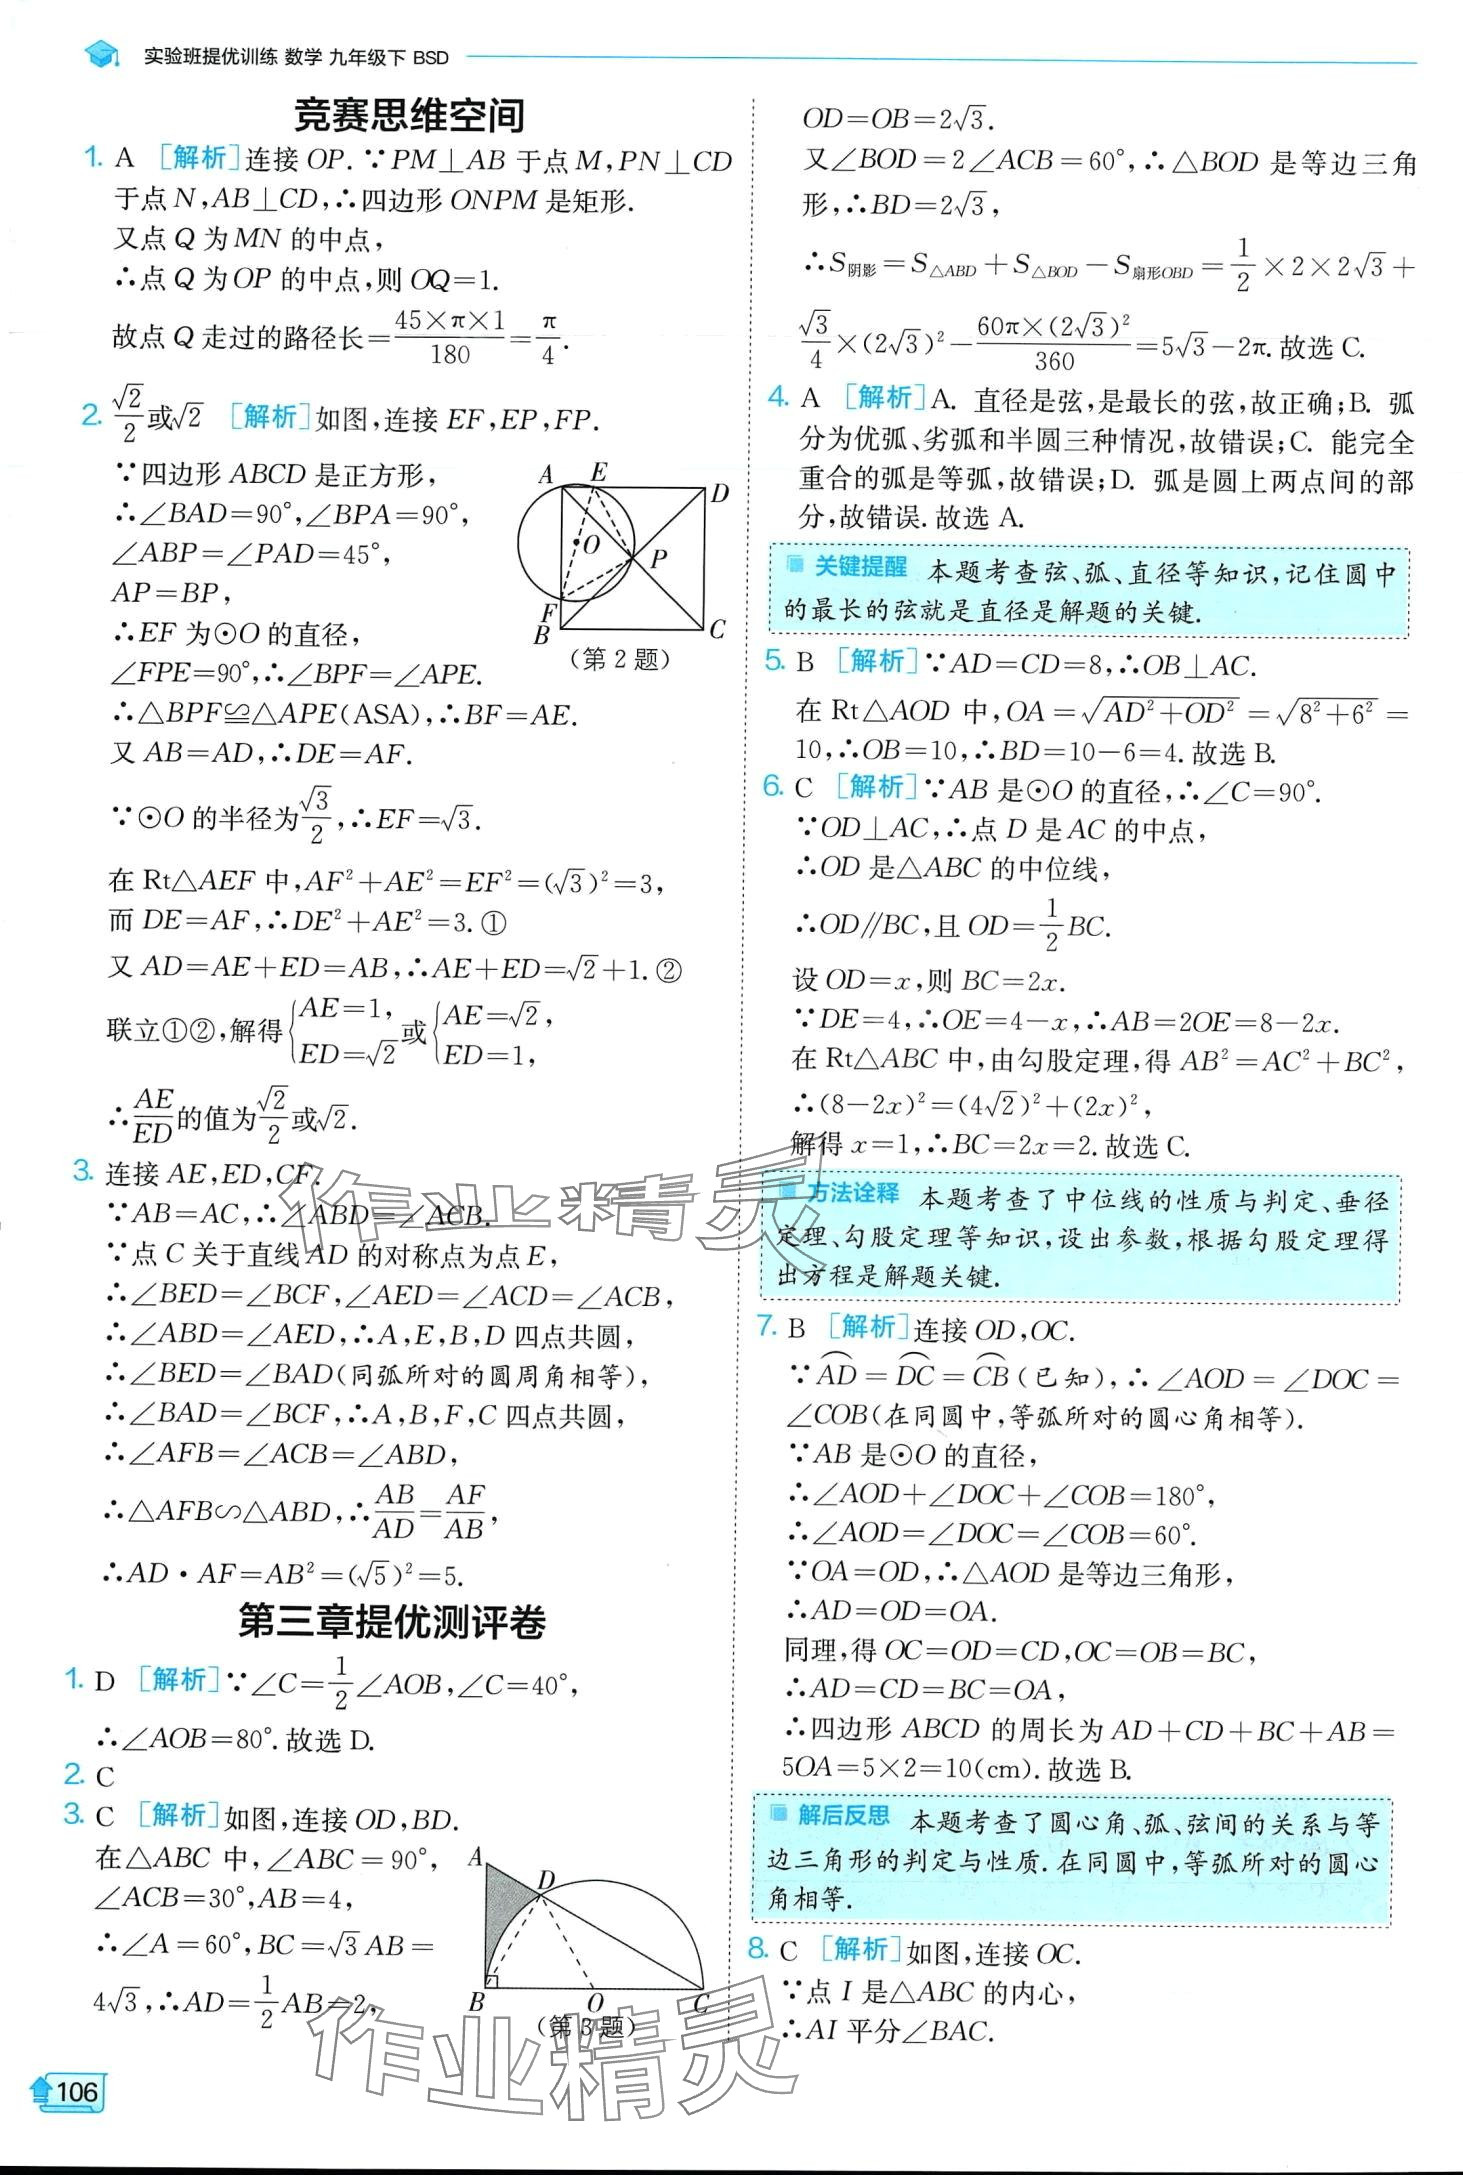 实验班提优训练 数学 九年级下 BSD
竞赛思维空间
1. A [解析]连接 OP. ∵PM⊥AB 于点 M,PN⊥CD
于点 N,AB⊥CD,∴四边形 ONPM 是矩形.
又点 Q 为 MN 的中点,
∴点 Q 为 OP 的中点,则 OQ=1.
故点 Q 走过的路径长=45×π×1/180=π/4.
2. √2/2或√2 [解析]如图,连接 EF,EP,FP.
∵四边形 ABCD 是正方形,
∴∠BAD=90°,∠BPA=90°,
∠ABP=∠PAD=45°,
AP=BP,
∴EF 为⊙O 的直径,
∠FPE=90°,∴∠BPF=∠APE.
∴△BPF≌△APE(ASA),∴BF=AE.
又 AB=AD,∴DE=AF.
∵⊙O 的半径为√3/2,∴EF=√3.
在 Rt△AEF 中,AF²+AE²=EF²=(√3)²=3,
而 DE=AF,∴DE²+AE²=3.①
又 AD=AE+ED=AB,∴AE+ED=√2+1.②
联立①②,解得{AE=1, ED=√2 或{AE=√2, ED=1,
∴AE/ED的值为√2/2或√2.
A E D O P F B C
(第 2 题)
3. 连接 AE,ED,CF.
∵AB=AC,∴∠ABD=∠ACB.
∵点 C 关于直线 AD 的对称点为点 E,
∴∠BED=∠BCF,∠AED=∠ACD=∠ACB,
∴∠ABD=∠AED,∴A,E,B,D 四点共圆,
∴∠BED=∠BAD(同弧所对的圆周角相等),
∴∠BAD=∠BCF,∴A,B,F,C 四点共圆,
∴∠AFB=∠ACB=∠ABD,
∴△AFB∽△ABD,∴AB/AD=AF/AB,
∴AD·AF=AB²=(√5)²=5.
第三章提优测评卷
1. D [解析]∵∠C=1/2∠AOB,∠C=40°,
∴∠AOB=80°.故选 D.
2. C
3. C [解析]如图,连接 OD,BD.
在△ABC 中,∠ABC=90°,
∠ACB=30°,AB=4,
∴∠A=60°,BC=√3AB=
4√3,∴AD=1/2AB=2,
A D B O C
(第 3 题)
106
OD=OB=2√3.
又∠BOD=2∠ACB=60°,∴△BOD 是等边三角
形,∴BD=2√3,
∴S阴影=S△ABD+S△BOD-S扇形OBD=1/2×2×2√3+
√3/4×(2√3)²-60π×(2√3)²/360=5√3-2π.故选 C.
4. A [解析]A. 直径是弦,是最长的弦,故正确;B. 弧
分为优弧、劣弧和半圆三种情况,故错误;C. 能完全
重合的弧是等弧,故错误;D. 弧是圆上两点间的部
分,故错误.故选 A.
关键提醒 本题考查弦、弧、直径等知识,记住圆中
的最长的弦就是直径是解题的关键.
5. B [解析]∵AD=CD=8,∴OB⊥AC.
在 Rt△AOD 中,OA=√(AD²+OD²)=√(8²+6²)=
10,∴OB=10,∴BD=10-6=4.故选 B.
6. C [解析]∵AB 是⊙O 的直径,∴∠C=90°.
∵OD⊥AC,∴点 D 是 AC 的中点,
∴OD 是△ABC 的中位线,
∴OD∥BC,且 OD=1/2BC.
设 OD=x,则 BC=2x.
∵DE=4,∴OE=4-x,∴AB=2OE=8-2x.
在 Rt△ABC 中,由勾股定理,得 AB²=AC²+BC²,
∴(8-2x)²=(4√2)²+(2x)²,
解得 x=1,∴BC=2x=2.故选 C.
方法诠释 本题考查了中位线的性质与判定、垂径
定理、勾股定理等知识,设出参数,根据勾股定理得
出方程是解题关键.
7. B [解析]连接 OD,OC.
∵⌒AD=⌒DC=⌒CB(已知),∴∠AOD=∠DOC=
∠COB(在同圆中,等弧所对的圆心角相等).
∵AB 是⊙O 的直径,
∴∠AOD+∠DOC+∠COB=180°,
∴∠AOD=∠DOC=∠COB=60°.
∵OA=OD,∴△AOD 是等边三角形,
∴AD=OD=OA.
同理,得 OC=OD=CD,OC=OB=BC,
∴AD=CD=BC=OA,
∴四边形 ABCD 的周长为 AD+CD+BC+AB=
5OA=5×2=10(cm).故选 B.
解后反思 本题考查了圆心角、弧、弦间的关系与等
边三角形的判定与性质.在同圆中,等弧所对的圆心
角相等.
8. C [解析]如图,连接 OC.
∵点 I 是△ABC 的内心,
∴AI 平分∠BAC.
作业精灵
作业精灵